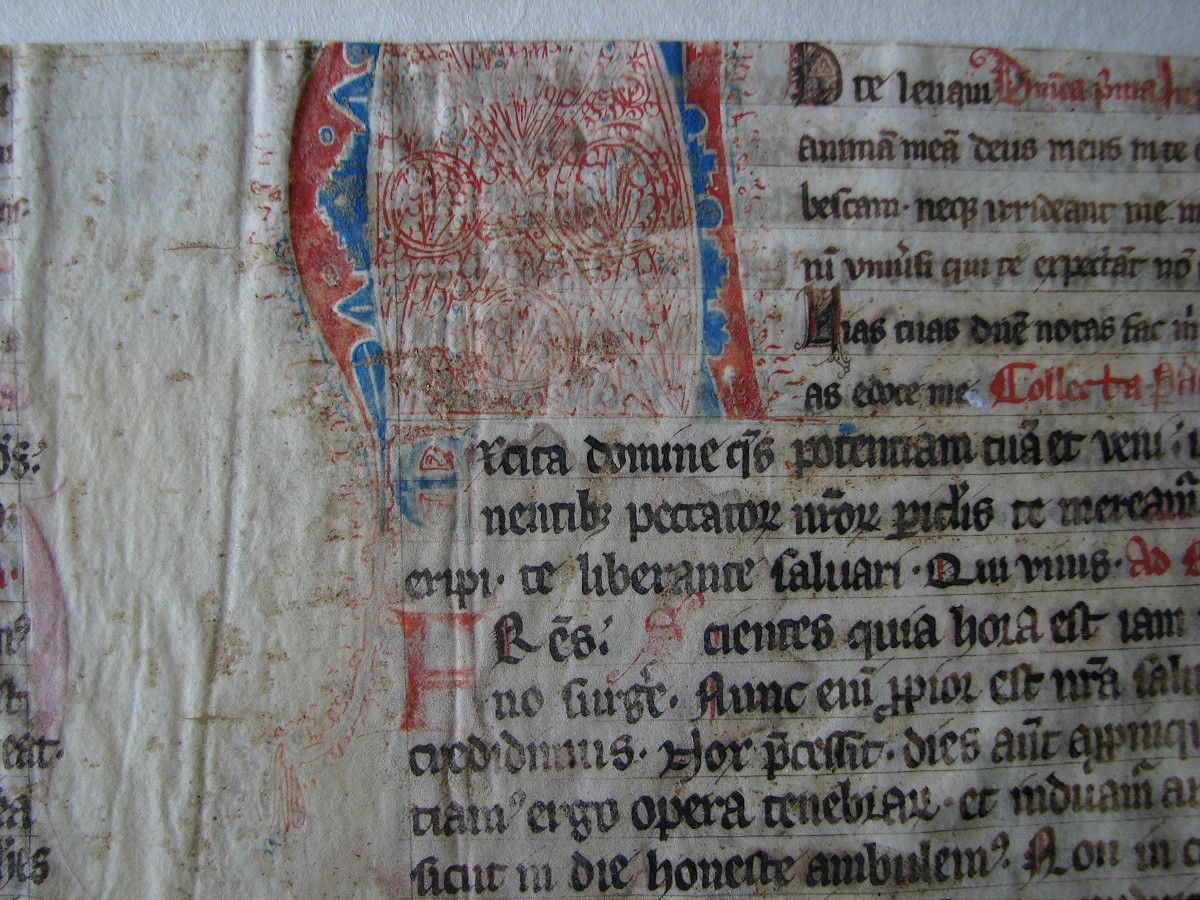 D te leuaui Dñica p̃ma
animā meā deus meus in te
bescam· neqꝫ irrideant me
ni vniũsi qui te expectāt nō
Uias tuas dñe notas fac
as edoce me· Collecta·
Excita domine qs̄ potentiam tuā et veni·
nentibꝫ peccatoꝝ nr̄oꝝ piclis te mereamr̄
eripi· te liberante saluari· Qui viuis· Ad
FRēs: Scientes quia hora est iam
no surgẽ· Nunc enī ꝓpior est nr̄a
credidimus· Nox p̄cessit· dies aūt
ciamꝰ ergo opera tenebraꝝ· et induam̄ ar
sicut in die honeste ambulemꝰ· Non in